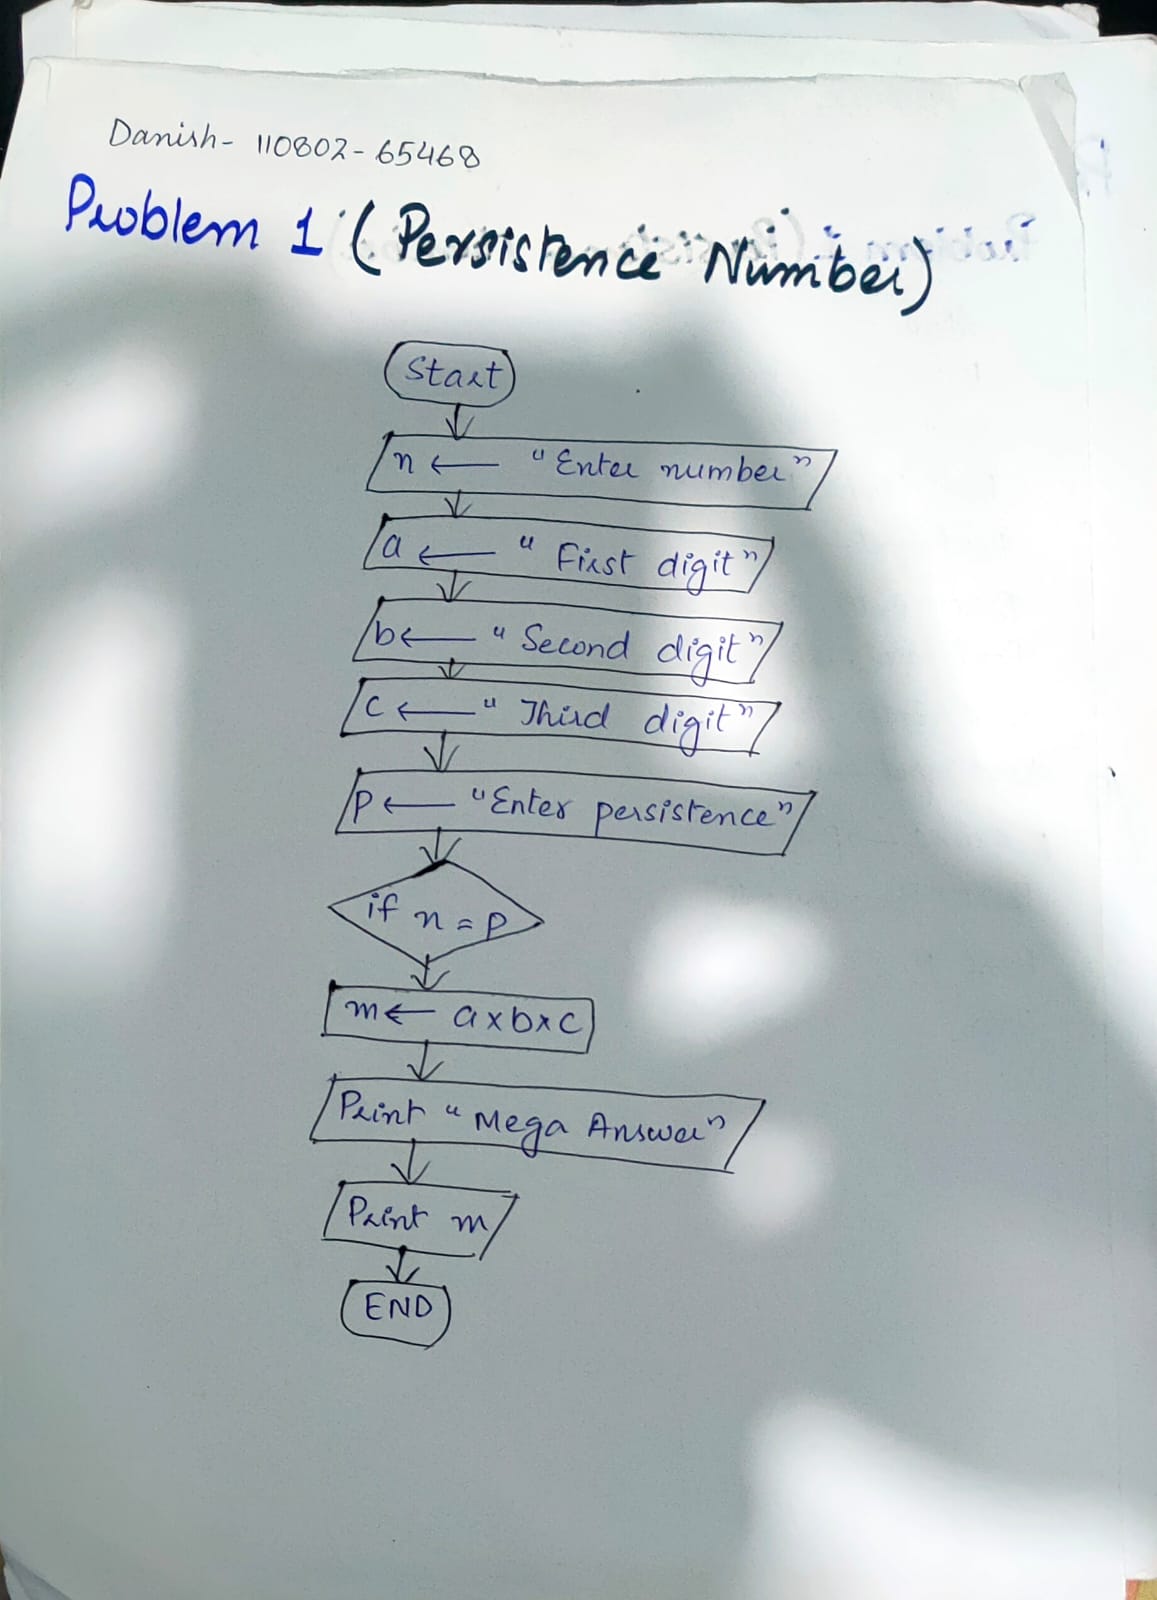 Danish- 110802-65468
Problem 1 (Persistence Number)
Start
n ← "Enter number"
a ← "First digit"
b ← "Second digit"
c ← "Third digit"
P ← "Enter persistence"
if n = P
m ← a x b x c
Print "Mega Answer"
Print m
END